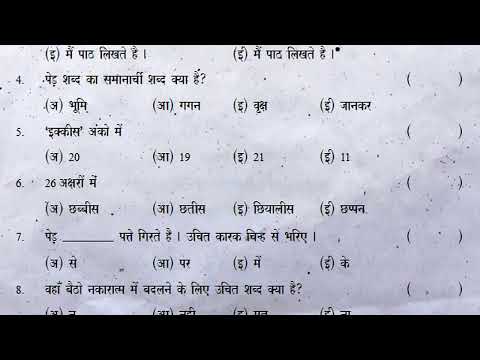 (इ) मैं पाठ लिखते है । (ई) मैं पाठ लिखते है ।
4. पेड़ शब्द का समानार्थी शब्द क्या है? ( )
(अ) भूमि (आ) गगन (इ) वृक्ष (ई) जानकर
5. 'इक्कीस' अंको में ( )
(अ) 20 (आ) 19 (इ) 21 (ई) 11
6. 26 अक्षरों में ( )
(अ) छब्बीस (आ) छतीस (इ) छियालीस (ई) छप्पन
7. पेड़ ________ पत्ते गिरते है । उचित कारक चिन्ह से भरिए । ( )
(अ) से (आ) पर (इ) में (ई) के
8. वहाँ बैठो नकारात्म में बदलने के लिए उचित शब्द क्या है? ( )
(अ) न (आ) नही (इ) मत (ई) ना